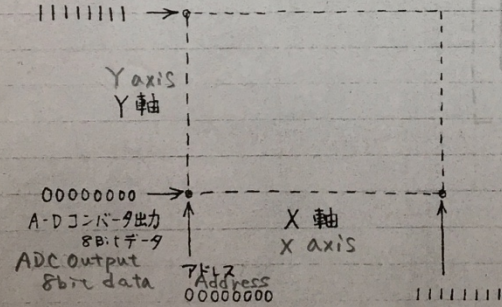 11111111
Y axis
Y 軸
00000000
A-Dコンバータ出力
8Bitデータ
ADC output
8bit data
X 軸
X axis
アドレス
Address
00000000
11111111